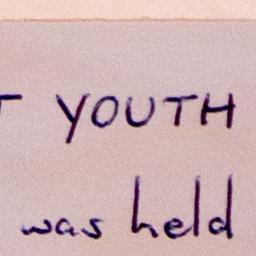 T YOUTH
was held